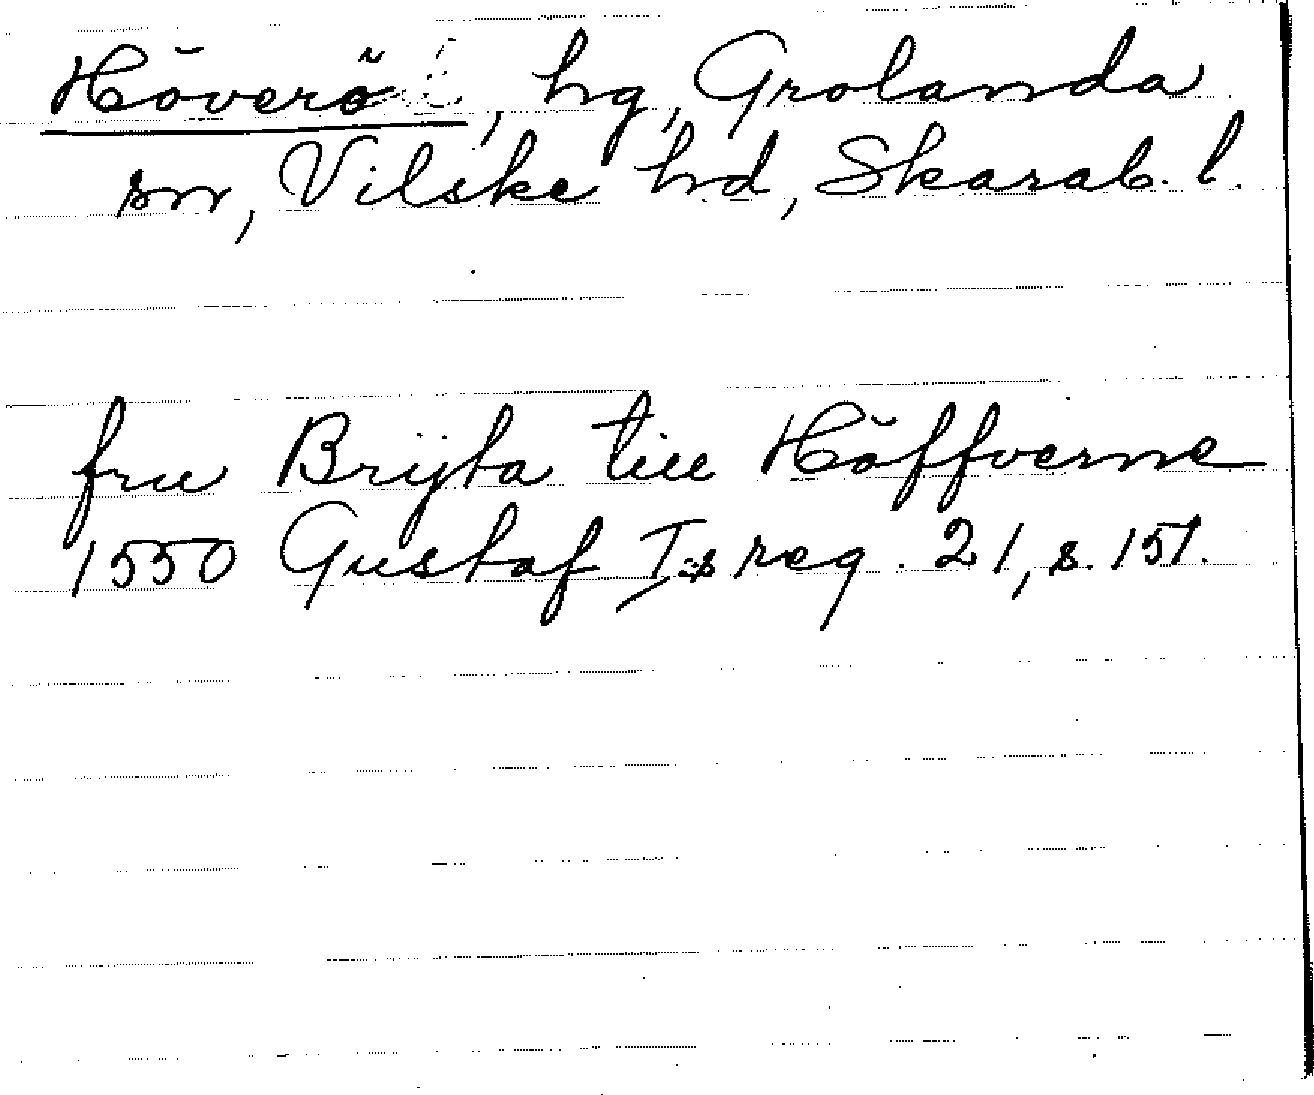 Höverö, hg, Grolanda
sn, Vilske hd, Skarab. l.
fru Brijta till Höffverne
1550 Gustaf I:s reg. 21, s. 151.